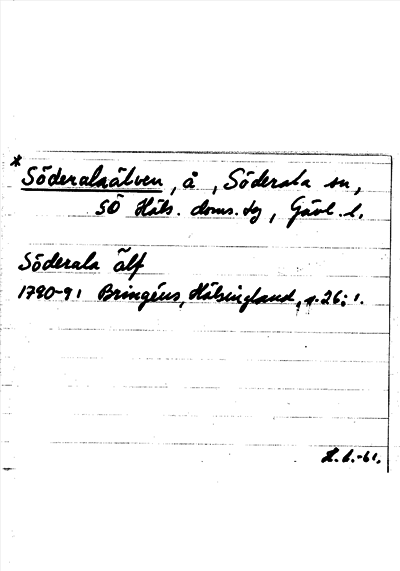 * Söderalaälven, å, Söderala sn,
SÖ Häls. doms. tg, Gävl. l.
Söderala älf
1790-91 Bringéus, Hälsingland, s. 26:1.
H.G.-61.